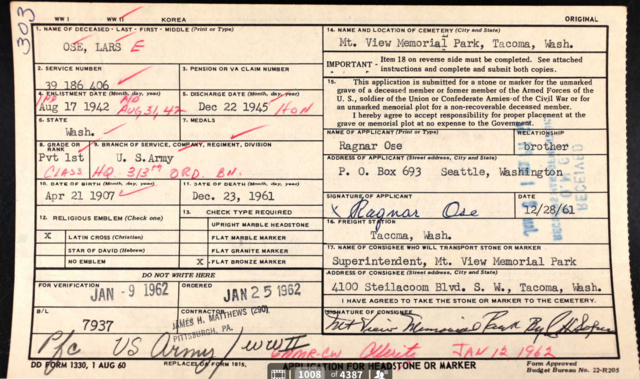 WW I WW II KOREA ORIGINAL
303
1. NAME OF DECEASED - LAST - FIRST - MIDDLE (Print or Type)
OSE, LARS E
2. SERVICE NUMBER
39 186 406
3. PENSION OR VA CLAIM NUMBER
4. ENLISTMENT DATE (Month, day, year)
Aug 17 1942
AUG, 31, 42
5. DISCHARGE DATE (Month, day, year)
Dec 22 1945 HON
6. STATE
Wash.
7. MEDALS
8. GRADE OR RANK
Pvt 1st
CLASS
9. BRANCH OF SERVICE, COMPANY, REGIMENT, DIVISION
U. S. Army
HQ. 313th ORD. BN.
10. DATE OF BIRTH (Month, day, year)
Apr 21 1907
11. DATE OF DEATH (Month, day, year)
Dec. 23, 1961
12. RELIGIOUS EMBLEM (Check one)
X LATIN CROSS (Christian)
STAR OF DAVID (Hebrew)
NO EMBLEM
13. CHECK TYPE REQUIRED
UPRIGHT MARBLE HEADSTONE
FLAT MARBLE MARKER
FLAT GRANITE MARKER
X FLAT BRONZE MARKER
DO NOT WRITE HERE
FOR VERIFICATION
JAN -9 1962
ORDERED
JAN 25 1962
B/L
7937
CONTRACTOR
JAMES H. MATTHEWS (290)
PITTSBURGH, PA.
Pfc US Army / WW II
14. NAME AND LOCATION OF CEMETERY (City and State)
Mt. View Memorial Park, Tacoma, Wash.
IMPORTANT - Item 18 on reverse side must be completed. See attached
instructions and complete and submit both copies.
15. This application is submitted for a stone or marker for the unmarked
grave of a deceased member or former member of the Armed Forces of the
U. S., soldier of the Union or Confederate Armies of the Civil War or for
an unmarked memorial plot for a non-recoverable deceased member.
I hereby agree to accept responsibility for proper placement at the
grave or memorial plot at no expense to the Government.
NAME OF APPLICANT (Print or Type)
Ragnar Ose
RELATIONSHIP
brother
ADDRESS OF APPLICANT (Street address, City and State)
P. O. Box 693 Seattle, Washington
SIGNATURE OF APPLICANT
Ragnar Ose
DATE
12/28/61
RECEIVED
16. FREIGHT STATION
Tacoma, Wash.
17. NAME OF CONSIGNEE WHO WILL TRANSPORT STONE OR MARKER
Superintendent, Mt. View Memorial Park
ADDRESS OF CONSIGNEE (Street address, City and State)
4100 Steilacoom Blvd. S. W., Tacoma, Wash.
I HAVE AGREED TO TAKE THE STONE OR MARKER TO THE CEMETERY.
SIGNATURE OF CONSIGNEE
Mt View Memorial Park By
JAN 12 1962
DD FORM 1330, 1 AUG 60
REPLACES OF FORM 1815,
APPLICATION FOR HEADSTONE OR MARKER
Form Approved
Budget Bureau No. 22-R205
1008 of 4387